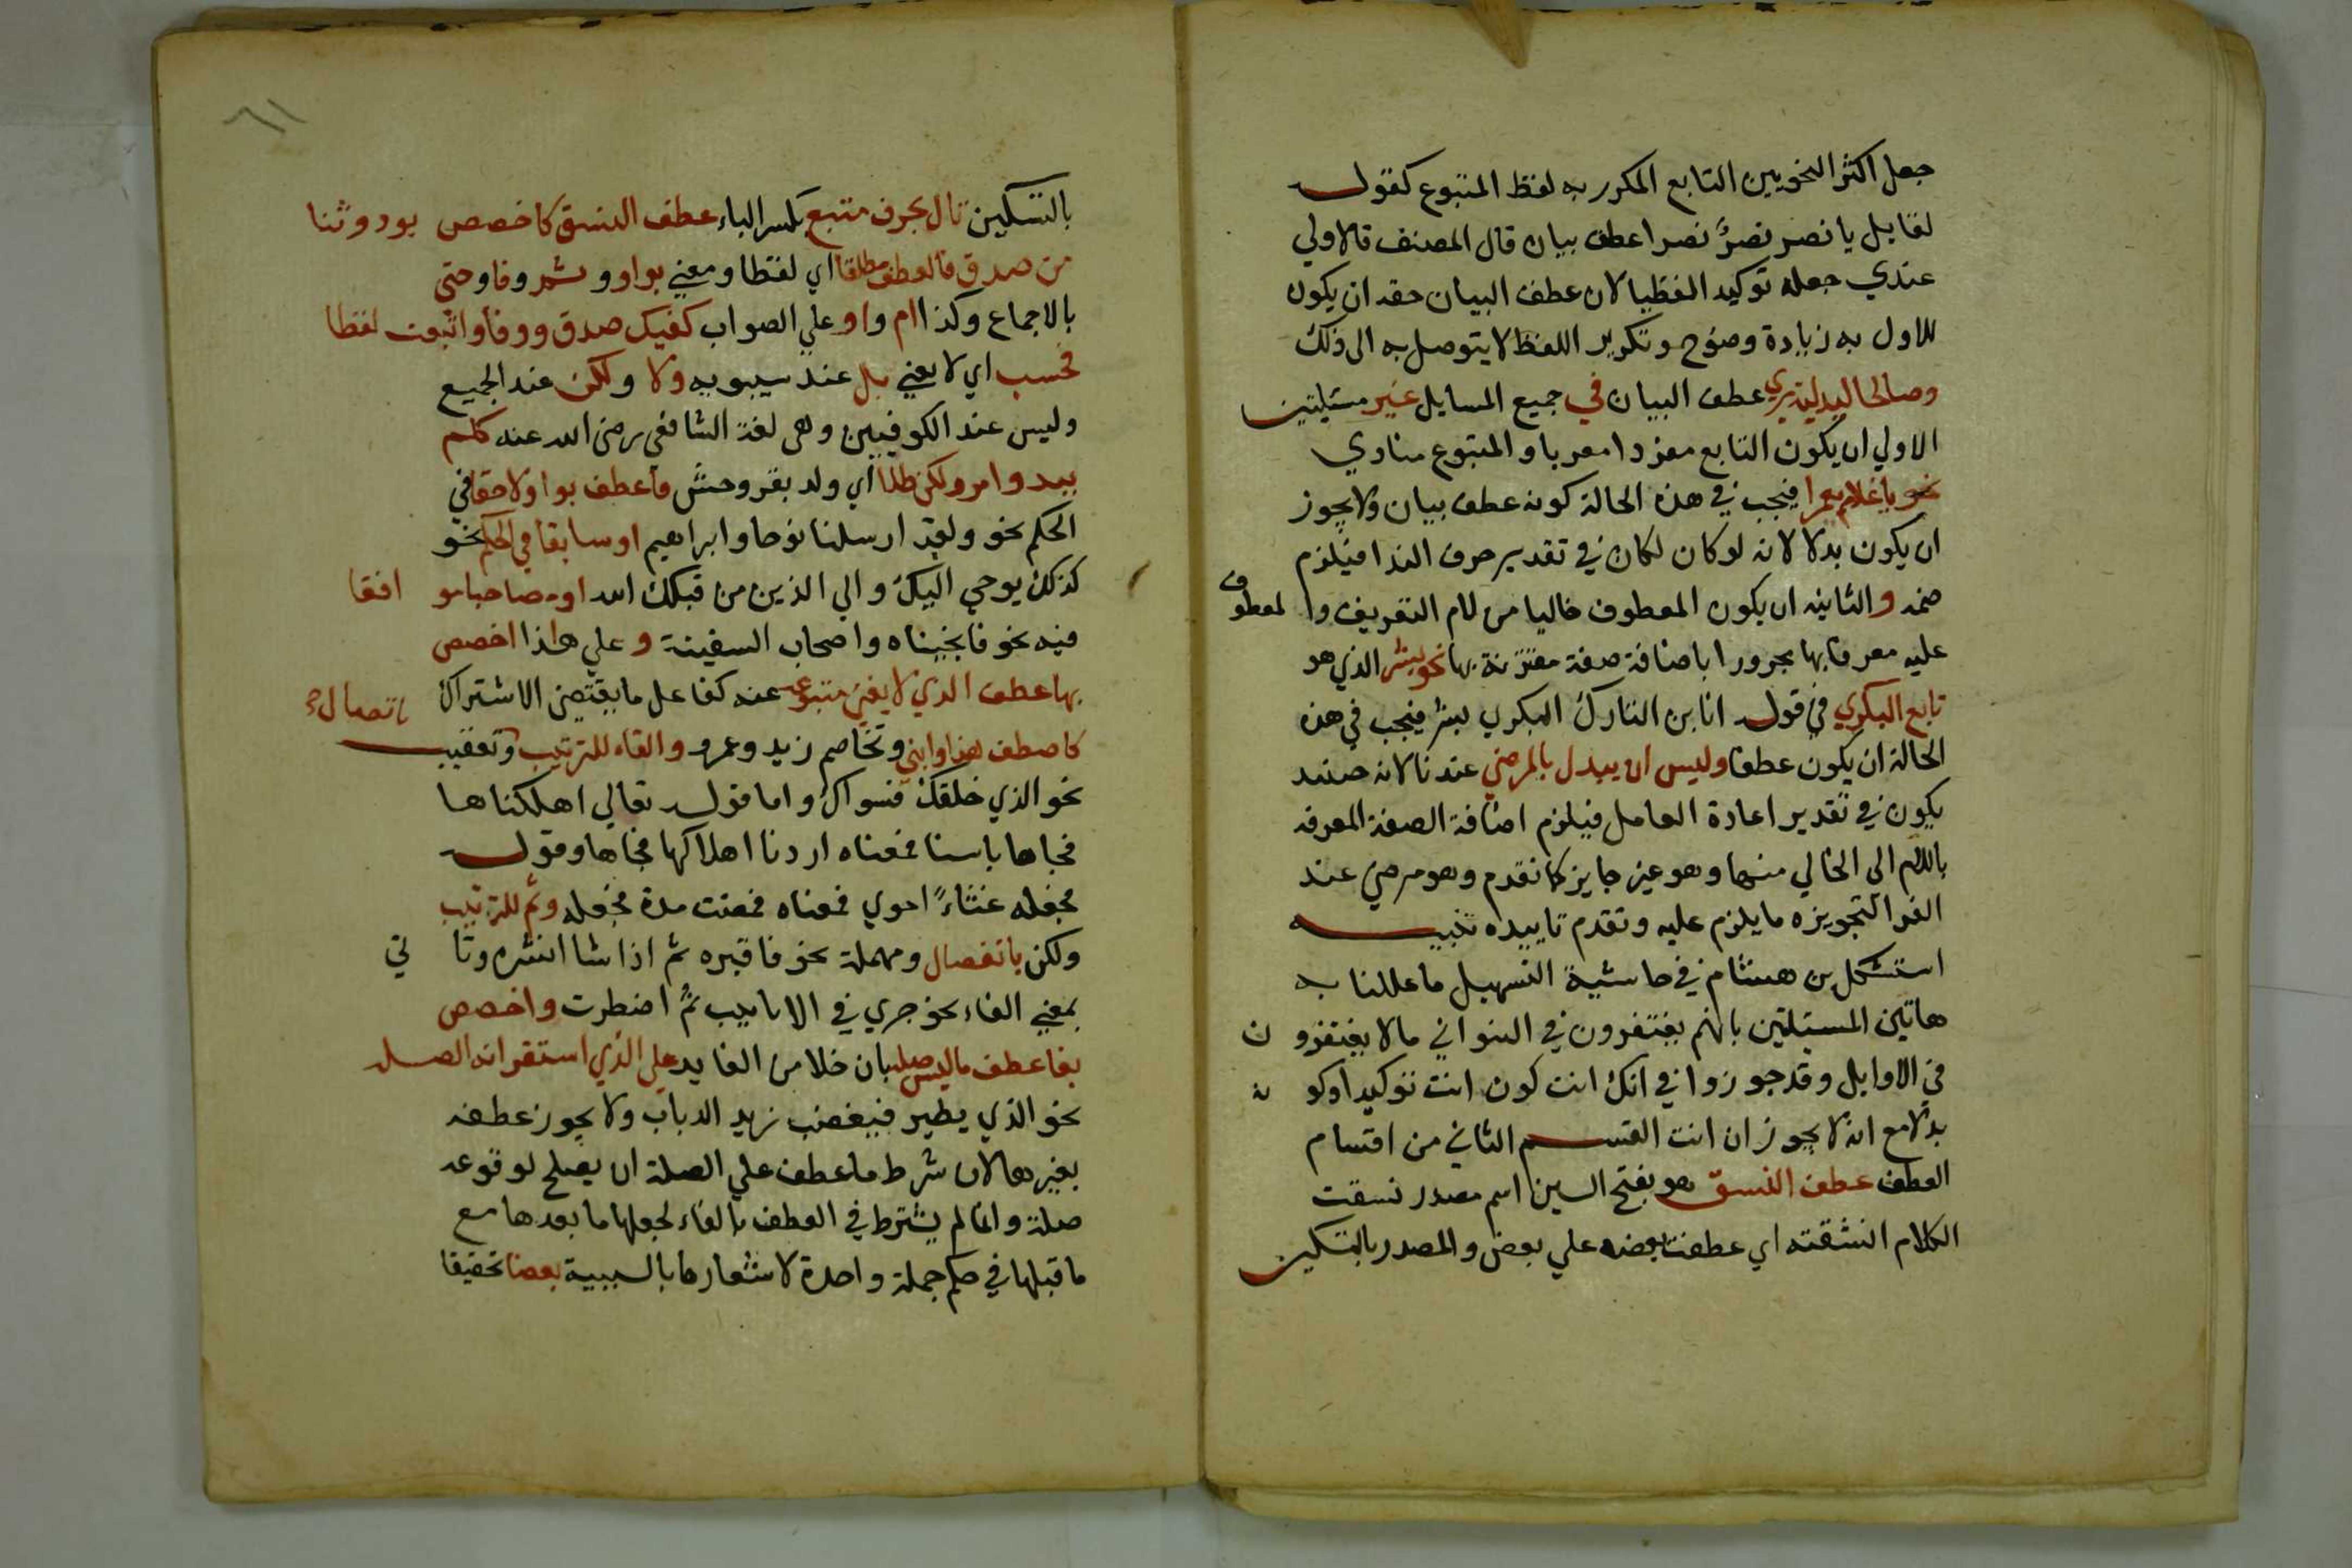 جعل اكثر النحويين التابع المكرر به لفظ المتبوع كقوله
لقايل يا نصر نصرٌ نصرا عطف بيان قال المصنف فالاولي
عندي جعله توكيد الفظيا لان عطف البيان حقه ان يكون
للاول به زيادة وضوح وتكرير اللفظ لا يتوصل به الى ذلك
وصالحا لبدلية يري عطف البيان في جميع المسايل غير مسئلتين
الاولي ان يكون التابع مفردا معربا والمتبوع منادي
نحو يا غلام يعمرا فيجب في هذه الحالة كونه عطف بيان ولا يجوز
ان يكون بدلا لانه لو كان لكان في تقدير حرف الندا فيلزم
ضمه والثانيه ان يكون المعطوف خاليا من لام التعريف والمعطوف
عليه معرفا بها مجرورا باضافة صفة مقترنة بها نحو بشر الذي هو
تابع البكري في قوله انا بن التارك البكري بشر فيجب في هذه
الحالة ان يكون عطفا وليس ان يبدل بالمرضي عندنا لانه حينئد
يكون في تقدير اعادة العامل فيلزم اضافة الصفة المعرفه
باللام الي الخالي منها وهو غير جايز كما تقدم وهو مرضي عند
الفرا لتجويزه ما يلزم عليه وتقدم تاييده تنبيه
استشكل بن هشام في حاشية التسهيل ما عللنا به
هاتين المسئلتين بانهم يغتفرون في الثواني ما لا يغتفرون
في الاوايل وقد جوزوا في انك انت كون انت توكيدا وكونه
بدلا مع انه لا يجوز ان انت القسم الثاني من اقسام
العطف عطف النسق هو بفتح السين اسم مصدر نسقت
الكلام انسقته اي عطفت بعضه علي بعض والمصدر بالتسكين
بالتسكين تال بحرف متبع بكسر الباء عطف النسق كاخصص بود وثنا
من صدق فالعطف مطلقا اي لفظا ومعني بواو وثم وفا وحتي
بالاجماع وكذا ام واو علي الصواب كفيك صدق ووفا واتبعت لفظا
فحسب اي لا بمعني بل عند سيبويه ولا ولكن عند الجميع
وليس عند الكوفيين وهي لغة الشافعي رضي الله عنه كلم
يبد وامرو لكن طلا اي ولد بقر وحش فاعطف بواو لاحقا في
الحكم نحو ولقد ارسلنا نوحا وابراهيم او سابقا في الحكم نحو
كذلك يوحي اليك والي الذين من قبلك الله او مصاحبا موافقا
فيه نحو فانجيناه واصحاب السفينة و علي هذا اخصص
بها عطف الذي لا يغني متبوعه عنه كفاعل ما يقتضي الاشتراك
كاصطف هذا وابني وتخاصم زيد وعمرو والفاء للترتيب وتعقيب باتصال
نحو الذي خلقك فسواك واما قوله تعالي اهلكناها
فجاها باسنا فمعناه اردنا اهلاكها فجاها وقوله
فجعله غثاءً احوي فمعناه فمضت مدة فجعله وثم للترتيب
ولكن بانفصال ومهملة نحو فاقبره ثم اذا شا انشره وتاتي
بمعني الفاء نحو جري في الانابيب ثم اضطرب واخصص
بفا عطف ما ليس صله بان خلا من العايد علي الذي استقر انه الصله
نحو الذي يطير فيغضب زيد الدباب ولا يجوز عطفه
بغيرها لان شرط ما عطف علي الصلة ان يصلح لوقوعه
صلة وانما لم يشترط في العطف بالفاء لجعلها ما بعدها مع
ما قبلها في حكم جملة واحدة لاشعارها بالسببية بعضا تحقيقا